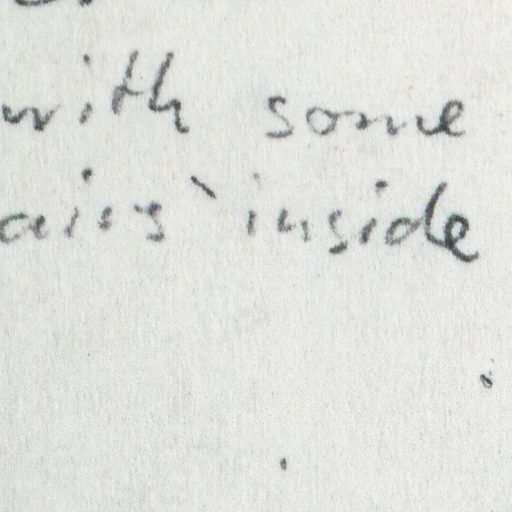 with some
airs inside